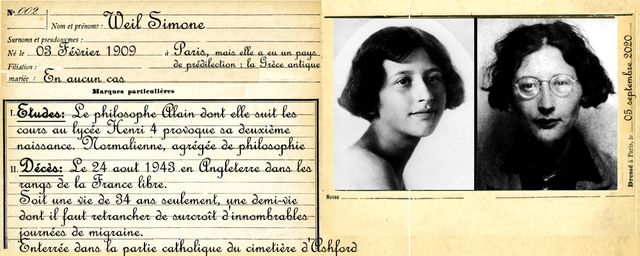 N° 002
Nom et prénoms : Weil Simone
Surnoms et pseudonymes :
Né le 03 Février 1909 à Paris, mais elle a eu un pays
Filiation : de prédilection : la Grèce antique
mariée : En aucun cas
Marques particulières
I. Etudes: Le philosophe Alain dont elle suit les
cours au lycée Henri 4 provoque sa deuxième
naissance. Normalienne, agrégée de philosophie
II. Décès: Le 24 aout 1943 en Angleterre dans les
rangs de la France libre.
Soit une vie de 34 ans seulement, une demi-vie
dont il faut retrancher de surcroît d'innombrables
journées de migraine.
Enterrée dans la partie catholique du cimetière d'Ashford
Notes
Dressé à Paris, le 05 septembre 2020